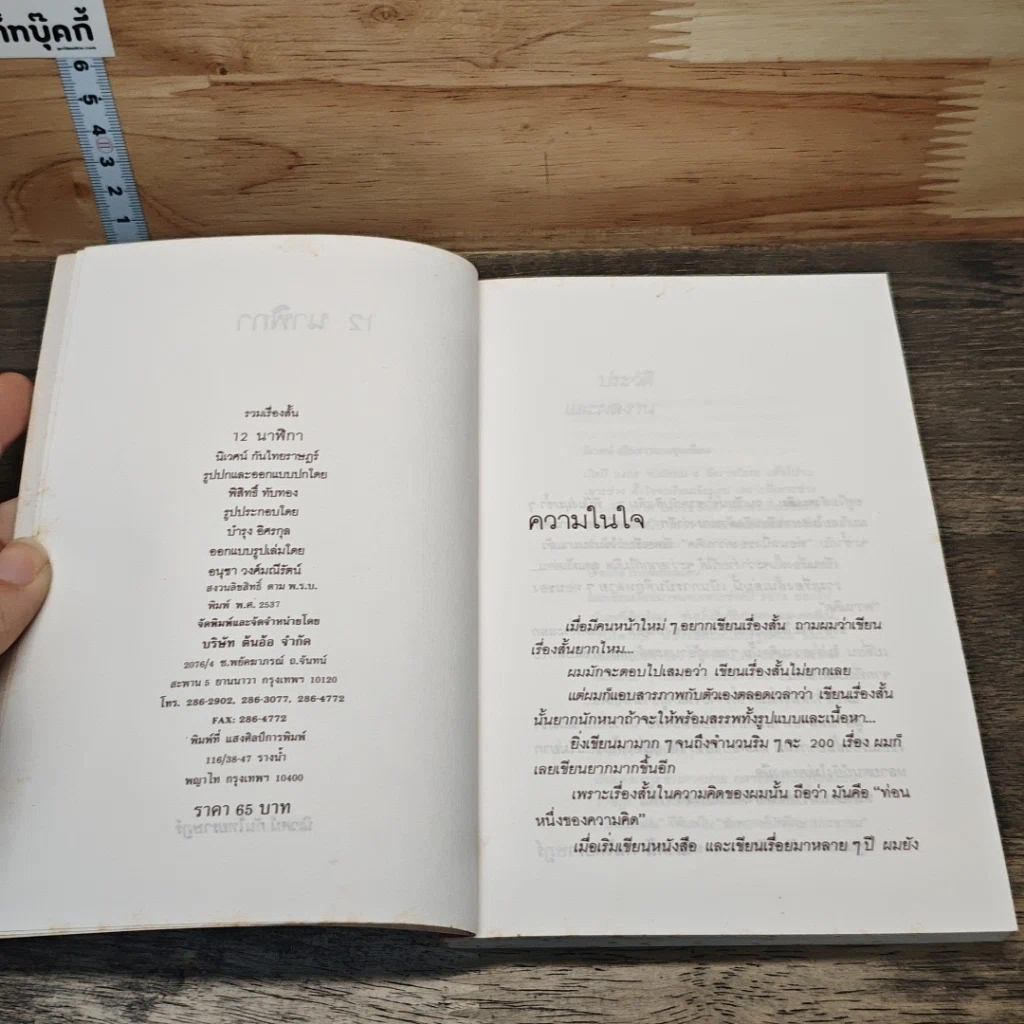 ท์ทบุ๊คกี้
6 5 4 3 2 1
รวมเรื่องสั้น
12 นาฬิกา
นิเวศน์ กันไทยราษฎร์
รูปปกและออกแบบปกโดย
พิสิทธิ์ ทับทอง
รูปประกอบโดย
บำรุง อิศรกุล
ออกแบบรูปเล่มโดย
อนุชา วงศ์มณีรัตน์
สงวนลิขสิทธิ์ ตาม พ.ร.บ.
พิมพ์ พ.ศ. 2537
จัดพิมพ์และจัดจำหน่ายโดย
บริษัท ต้นอ้อ จำกัด
2076/4 ซ.พยัคฆาภรณ์ ถ.จันทน์
สะพาน 5 ยานนาวา กรุงเทพฯ 10120
โทร. 286-2902, 286-3077, 286-4772
FAX: 286-4772
พิมพ์ที่ แสงศิลป์การพิมพ์
116/38-47 รางน้ำ
พญาไท กรุงเทพฯ 10400
ราคา 65 บาท
ความในใจ
เมื่อมีคนหน้าใหม่ ๆ อยากเขียนเรื่องสั้น ถามผมว่าเขียน
เรื่องสั้นยากไหม...
ผมมักจะตอบไปเสมอว่า เขียนเรื่องสั้นไม่ยากเลย
แต่ผมก็แอบสารภาพกับตัวเองตลอดเวลาว่า เขียนเรื่องสั้น
นั้นยากนักหนาถ้าจะให้พร้อมสรรพทั้งรูปแบบและเนื้อหา...
ยิ่งเขียนมามาก ๆ จนถึงจำนวนริม ๆ จะ 200 เรื่อง ผมก็
เลยเขียนยากมากขึ้นอีก
เพราะเรื่องสั้นในความคิดของผมนั้น ถือว่า มันคือ “ท่อน
หนึ่งของความคิด”
เมื่อเริ่มเขียนหนังสือ และเขียนเรื่อยมาหลาย ๆ ปี ผมยัง